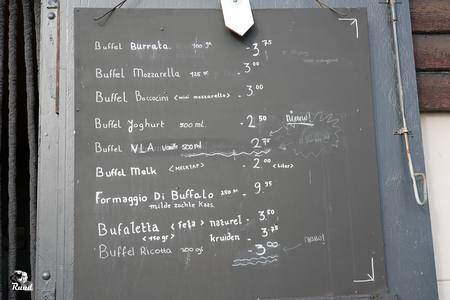 Buffel Burrata 100 gr - 3 75
Buffel Mozzarella 125 gr - 3 00
Buffel Boccocini <mini mozzarella> - 3 00
Buffel Joghurt 500 ml. - 2 50
Nieuw!
Buffel VLA Vanille 500 ml 2 75
Buffel Melk <MELKTAP> - 2 00 <Liter>
Formaggio Di Buffalo 250 gr - 9 95
milde zachte kaas
Bufaletta <feta> naturel - 3 50
<150 gr> kruiden - 3 75
Buffel Ricotta 200 gr - 3 00
nieuw!
Ruud